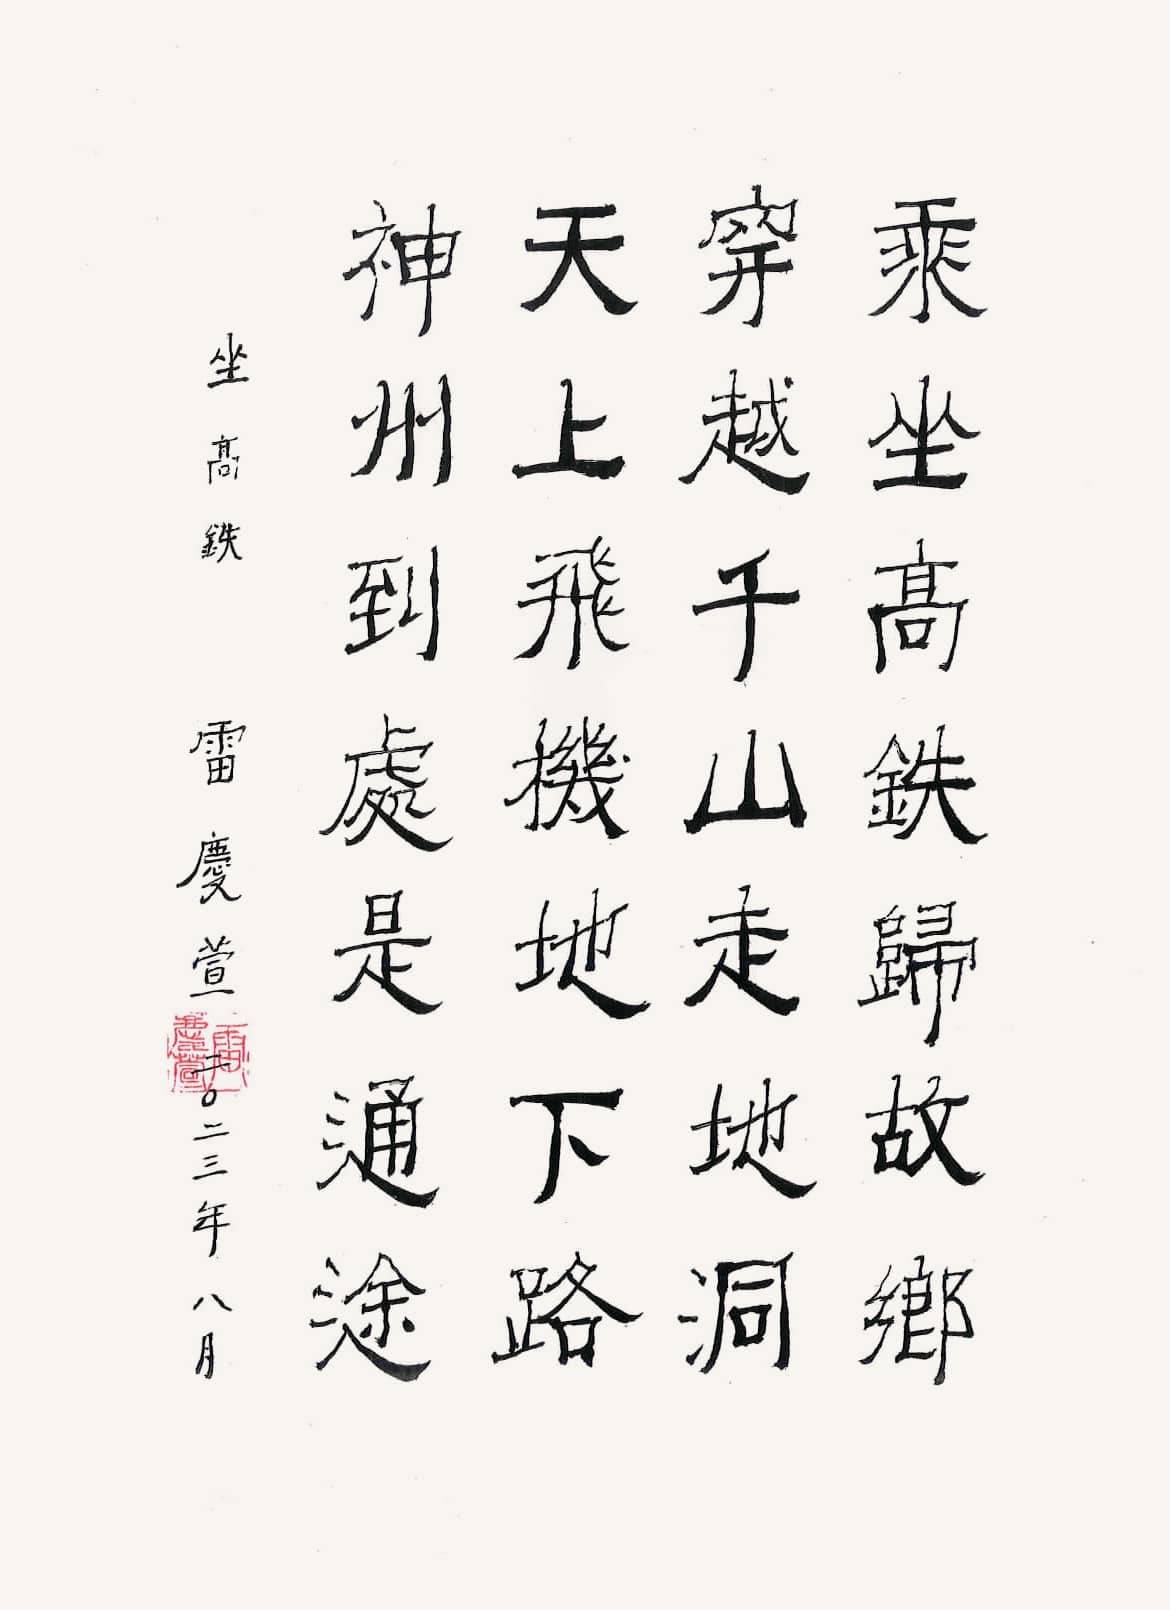 乘坐高鉄歸故鄉
穿越千山走地洞
天上飛機地下路
神州到處是通途
坐高鉄 雷慶萱 二〇二三年八月
雷慶萱